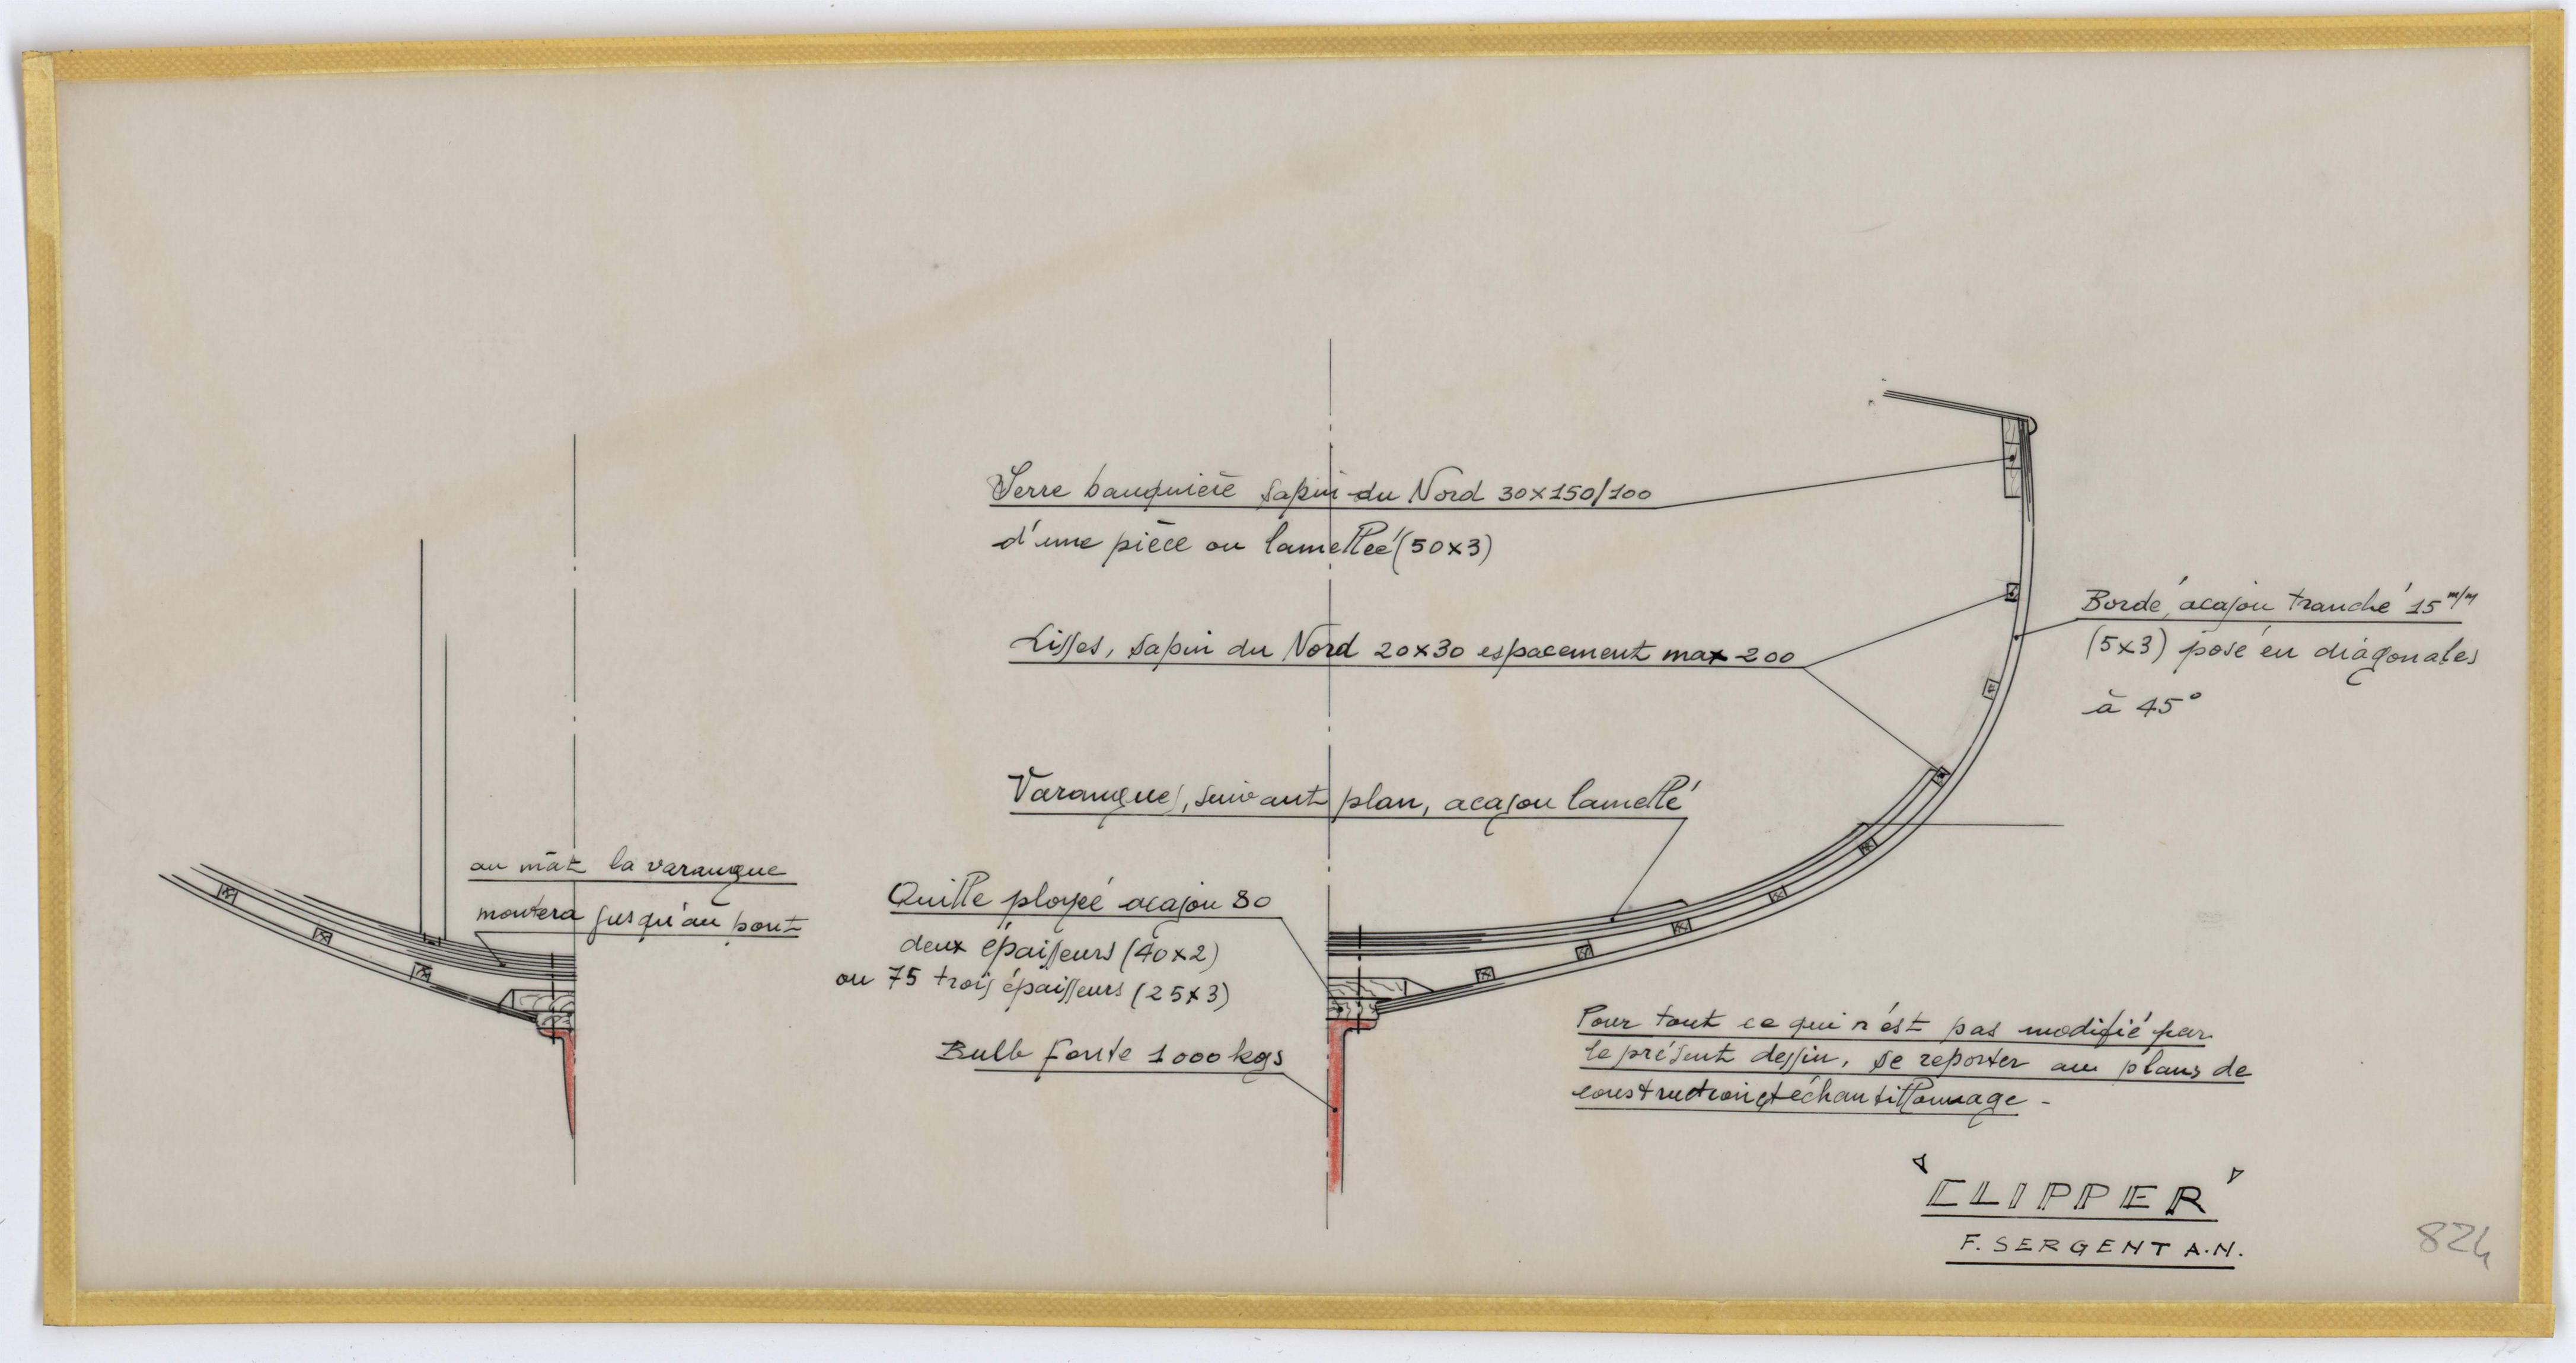 Serre bauquière sapin du Nord 30x150/100
d'une pièce ou lamellée (50x3)
Lisses, sapin du Nord 20x30 espacement max 200
Bordé, acajou tranché 15 m/m
(5x3) posé en diagonales
à 45°
Varangues, suivant plan, acajou lamellé
au mât la varangue
montera jusqu'au pont
Quille ployée acajou 80
deux épaisseurs (40x2)
ou 75 trois épaisseurs (25x3)
Bulb fonte 1000 kgs
Pour tout ce qui n'est pas modifié par
le présent dessin, se reporter au plans de
construction et échantillonnage -
"CLIPPER"
F. SERGENT A.N.
824